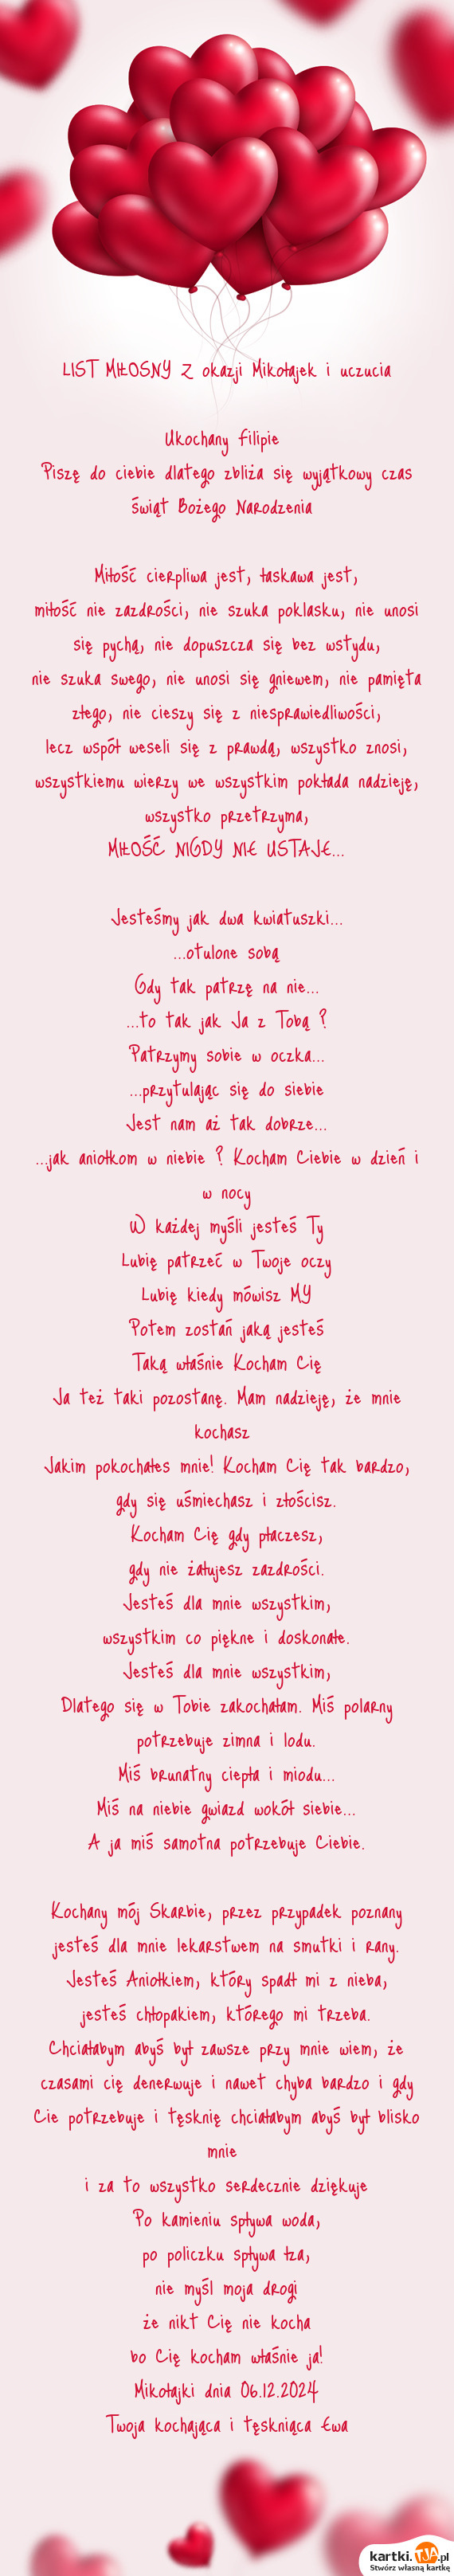 LIST MIŁOSNY Z okazji Mikołajek i uczucia
Ukochany Filipie
Piszę do ciebie dlatego zbliża się wyjątkowy czas
świąt Bożego Narodzenia
Miłość cierpliwa jest, łaskawa jest,
miłość nie zazdrości, nie szuka poklasku, nie unosi
się pychą, nie dopuszcza się bez wstydu,
nie szuka swego, nie unosi się gniewem, nie pamięta
złego, nie cieszy się z niesprawiedliwości,
lecz wspót weseli się z prawdą, wszystko znosi,
wszystkiemu wierzy we wszystkim pokłada nadzieję,
wszystko przetrzyma,
MIŁOŚĆ NIGDY NIE USTAJE...
Jesteśmy jak dwa kwiatuszki...
...otulone sobą
Gdy tak patrzę na nie...
...to tak jak Ja z Tobą ?
Patrzymy sobie w oczka...
...przytulając się do siebie
Jest nam aż tak dobrze...
...jak aniołkom w niebie ? Kocham Ciebie w dzień i
w nocy
W każdej myśli jesteś Ty
Lubię patrzeć w Twoje oczy
Lubię kiedy mówisz MY
Potem zostań jaką jesteś
Taką właśnie Kocham Cię
Ja też taki pozostanę. Mam nadzieję, że mnie
kochasz
Jakim pokochałes mnie! Kocham Cię tak bardzo,
gdy się uśmiechasz i złościsz.
Kocham Cię gdy płaczesz,
gdy nie żałujesz zazdrości.
Jesteś dla mnie wszystkim,
wszystkim co piękne i doskonałe.
Jesteś dla mnie wszystkim,
Dlatego się w Tobie zakochałam. Miś polarny
potrzebuje zimna i lodu.
Miś brunatny ciepła i miodu...
Miś na niebie gwiazd wokół siebie...
A ja miś samotna potrzebuje Ciebie.
Kochany mój Skarbie, przez przypadek poznany
jesteś dla mnie lekarstwem na smutki i rany.
Jesteś Aniołkiem, który spadł mi z nieba,
jesteś chłopakiem, którego mi trzeba.
Chciałabym abyś był zawsze przy mnie wiem, że
czasami cię denerwuje i nawet chyba bardzo i gdy
Cie potrzebuje i tęsknię chciałabym abyś był blisko
mnie
i za to wszystko serdecznie dziękuje
Po kamieniu spływa woda,
po policzku spływa łza,
nie myśl moja drogi
że nikt Cię nie kocha
bo Cię kocham właśnie ja!
Mikołajki dnia 06.12.2024
Twoja kochająca i tęskniąca Ewa
kartki.TJA.pl
Stwórz własną kartkę